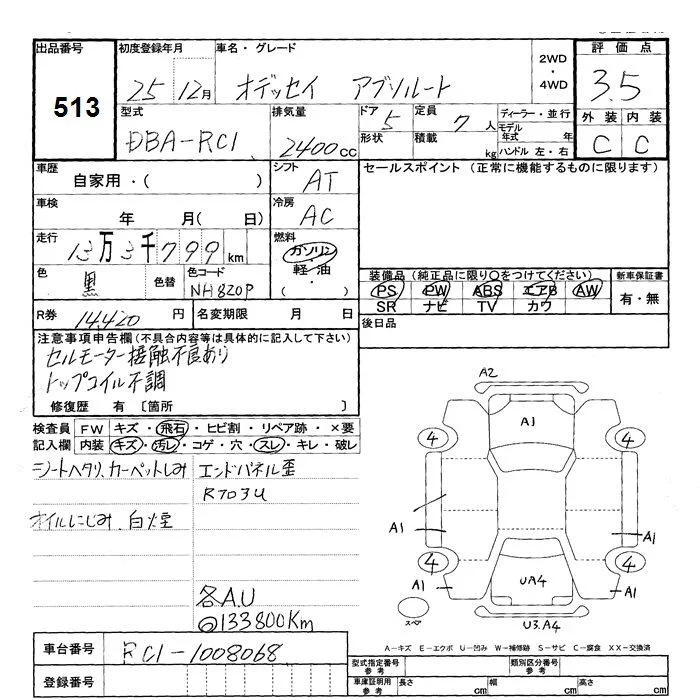 出品番号 初度登録年月 車名・グレード 2WD・4WD 評価点
513 25 12月 オデッセイ アブソルート 3.5
型式 排気量 ドア 5 定員 7人 ディーラー・並行 外装 内装
DBA-RC1 2400cc 形状 積載 kg モデル年式 年 ハンドル 左・右 C C
車歴 シフト セールスポイント (正常に機能するものに限ります)
自家用・( ) AT
車検 冷房
年 月( 日) AC
走行 燃料
13万3千799km ガソリン・軽油
色 色替 色コード ( ) 装備品 (純正品に限り○をつけてください) 新車保証書
黒 NH820P PS PW ABS エアB AW 有・無
SR ナビ TV カワ
R券 14,420円 名変期限 月 日 後日品
注意事項申告欄(不具合内容等は具体的に記入して下さい)
セルモーター接触不良あり
トップコイル不調
修復歴 有 〔箇所 〕
検査員 FW キズ・飛石・ヒビ割・リペア跡・×要
記入欄 内装 キズ・汚レ・コゲ・穴・スレ・キレ・破レ
シートヘタリ、カーペットしみ エンドパネル歪
R703U
オイルにじみ、白煙
各A.U
◎133800Km
A2
A1
4 4
A1 A1
4 4
A1 A1
UA4
スペア U3.A4
A-キズ E-エクボ U-凹み W-補修跡 S-サビ C-腐食 XX-交換済
車台番号 RC1-1008068 型式指定番号 参考 類別区分番号 参考
登録番号 車庫証明用 参考 長さ cm 幅 cm 高さ cm